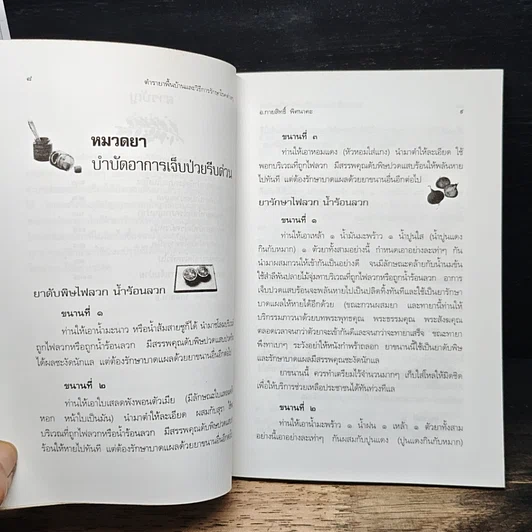 ๘
ตำรายาพื้นบ้านและวิธีการรักษาโรคต่างๆ
หมวดยา
บำบัดอาการเจ็บป่วยรีบด่วน
ยาดับพิษไฟลวก น้ำร้อนลวก
ขนานที่ ๑
ท่านให้เอาน้ำมะนาว หรือน้ำส้มสายชูก็ได้ นำมาชโลมบริเวณที่
ถูกไฟลวกหรือถูกน้ำร้อนลวก มีสรรพคุณดับพิษปวดแสบปวดร้อน
ได้ผลชะงัดนักแล แต่ต้องรักษาบาดแผลด้วยยาขนานอื่นอีกต่อไป
ขนานที่ ๒
ท่านให้เอาใบเสลดพังพอนตัวเมีย (มีลักษณะใบ
หอก หน้าใบเป็นมัน) นำมาตำให้ละเอียด ผสมกับสุรา
บริเวณที่ถูกไฟลวกหรือน้ำร้อนลวก มีสรรพคุณดับพิษปวดแสบปวด
ร้อนให้หายไปทันที แต่ต้องรักษาบาดแผลด้วยยาขนานอื่นอีกต่อไป
อ.กายสิทธิ์ พิศนาคะ
๙
ขนานที่ ๓
ท่านให้เอาหอมแดง (หัวหอมใส่แกง) นำมาตำให้ละเอียด ใช้
พอกบริเวณที่ถูกไฟลวก มีสรรพคุณดับพิษปวดแสบร้อนให้พลันหาย
ไปทันที แต่ต้องรักษาบาดแผลด้วยยาขนานอื่นอีกต่อไป
ยารักษาไฟลวก น้ำร้อนลวก
ขนานที่ ๑
ท่านให้เอาเหล้า ๑ น้ำมันมะพร้าว ๑ น้ำปูนใส (น้ำปูนแดง
กินกับหมาก) ๑ ตัวยาทั้งสามอย่างนี้ กำหนดเอาอย่างละเท่าๆ กัน
นำมาผสมกวนให้เข้ากันเป็นอย่างดี จนมีลักษณะคล้ายกับน้ำนมข้น
ใช้สำลีพันปลายไม้จุ่มทาบริเวณที่ถูกไฟลวกหรือถูกน้ำร้อนลวก อาการ
เจ็บปวดแสบร้อนจะพลันหายไปเป็นปลิดทิ้งทันทีและใช้เป็นยารักษา
บาดแผลให้หายได้อีกด้วย (ขณะกวนผสมยา และทายานี้ท่านให้
บริกรรมภาวนาด้วยบทพระพุทธคุณ พระธรรมคุณ พระสังฆคุณ
ตลอดเวลาจนกว่าตัวยาจะเข้ากันดีและจนกว่าจะทายาเสร็จ ขณะทายา
พึงทาเบาๆ ระวังอย่าให้หนังกำพร้าถลอก ยาขนานนี้ใช้เป็นยาดับพิษ
และรักษาบาดแผลมีสรรพคุณชะงัดนักแล
ยาขนานนี้ ควรทำเตรียมไว้จำนวนมากๆ เก็บใส่โหลให้มิดชิด
เพื่อให้บริการช่วยเหลือประชาชนได้ทันท่วงทีแล
ขนานที่ ๒
ท่านให้เอาน้ำมะพร้าว ๑ น้ำฝน ๑ เหล้า ๑ ตัวยาทั้งสาม
อย่างนี้เอาอย่างละเท่าๆ กันผสมกับปูนแดง (ปูนแดงกินกับหมาก)